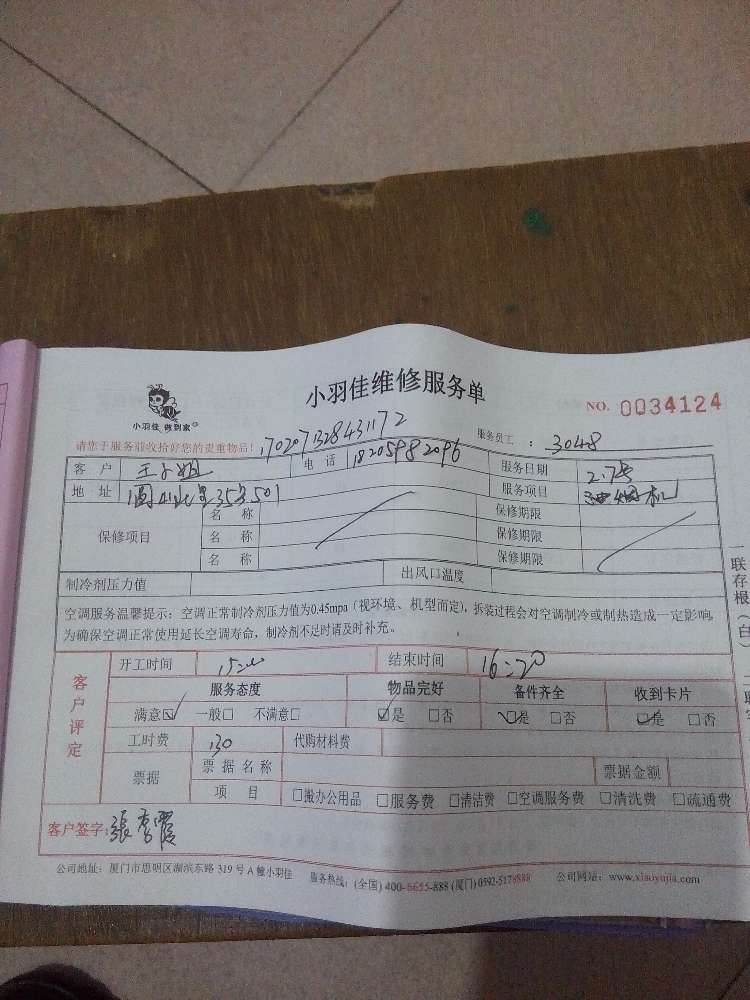 小羽佳维修服务单
NO. 0034124
小羽佳 做到家
请您于服务前收拾好您的贵重物品!
1702071328431172
服务员工: 3048
客户 王小姐 电话 18205982096 服务日期 2.7号
地址 35号501 服务项目 油烟机
保修项目 名称 保修期限
名称 保修期限
名称 保修期限
制冷剂压力值 出风口温度
空调服务温馨提示:空调正常制冷剂压力值为0.45mpa(视环境、机型而定),拆装过程会对空调制冷或制热造成一定影响,
为确保空调正常使用延长空调寿命,制冷剂不足时请及时补充。
客户评定
开工时间 结束时间 16:20
服务态度 物品完好 备件齐全 收到卡片
满意☑ 一般□ 不满意□ ☑是 □否 ☑是 □否 ☑是 □否
工时费 130 代购材料费
票据 票据名称 票据金额
项目 □搬办公用品 □服务费 □清洁费 □空调服务费 □清洗费 □疏通费
客户签字: 張秀霞
公司地址:厦门市思明区湖滨东路319号A幢小羽佳 服务热线:(全国)400-6655-888 (厦门)0592-5178888 公司网站:www.xiaoyujia.com
一联存根(白)